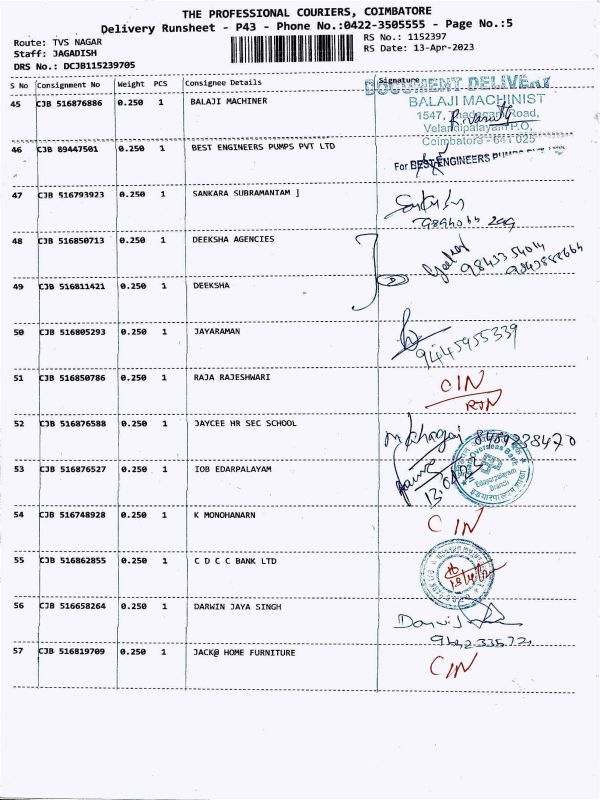 THE PROFESSIONAL COURIERS, COIMBATORE
Delivery Runsheet - P43 - Phone No.:0422-3505555 - Page No.:5
Route: TVS NAGAR
Staff: JAGADISH
DRS No.: DCJB115239705
RS No.: 1152397
RS Date: 13-Apr-2023
S No Consignment No Weight PCS Consignee Details Signature
DOCUMENT DELIVERY
45 CJB 516876886 0.250 1 BALAJI MACHINER
BALAJI MACHINIST
1547, Road,
Velandipalayam P.O,
Coimbatore - 641 025
46 CJB 89447501 0.250 1 BEST ENGINEERS PUMPS PVT LTD
For BEST ENGINEERS PUMPS PVT LTD
47 CJB 516793923 0.250 1 SANKARA SUBRAMANIAM J
48 CJB 516850713 0.250 1 DEEKSHA AGENCIES
9843354014
49 CJB 516811421 0.250 1 DEEKSHA
50 CJB 516805293 0.250 1 JAYARAMAN
9445955339
51 CJB 516850786 0.250 1 RAJA RAJESHWARI
CIN
RTN
52 CJB 516876588 0.250 1 JAYCEE HR SEC SCHOOL
8489238470
53 CJB 516876527 0.250 1 IOB EDARPALAYAM
Overseas Bank
Edayarpalayam
Branch
54 CJB 516748928 0.250 1 K MONOHANARN
CIN
55 CJB 516862855 0.250 1 C D C C BANK LTD
56 CJB 516658264 0.250 1 DARWIN JAYA SINGH
57 CJB 516819709 0.250 1 JACK@ HOME FURNITURE
CIN